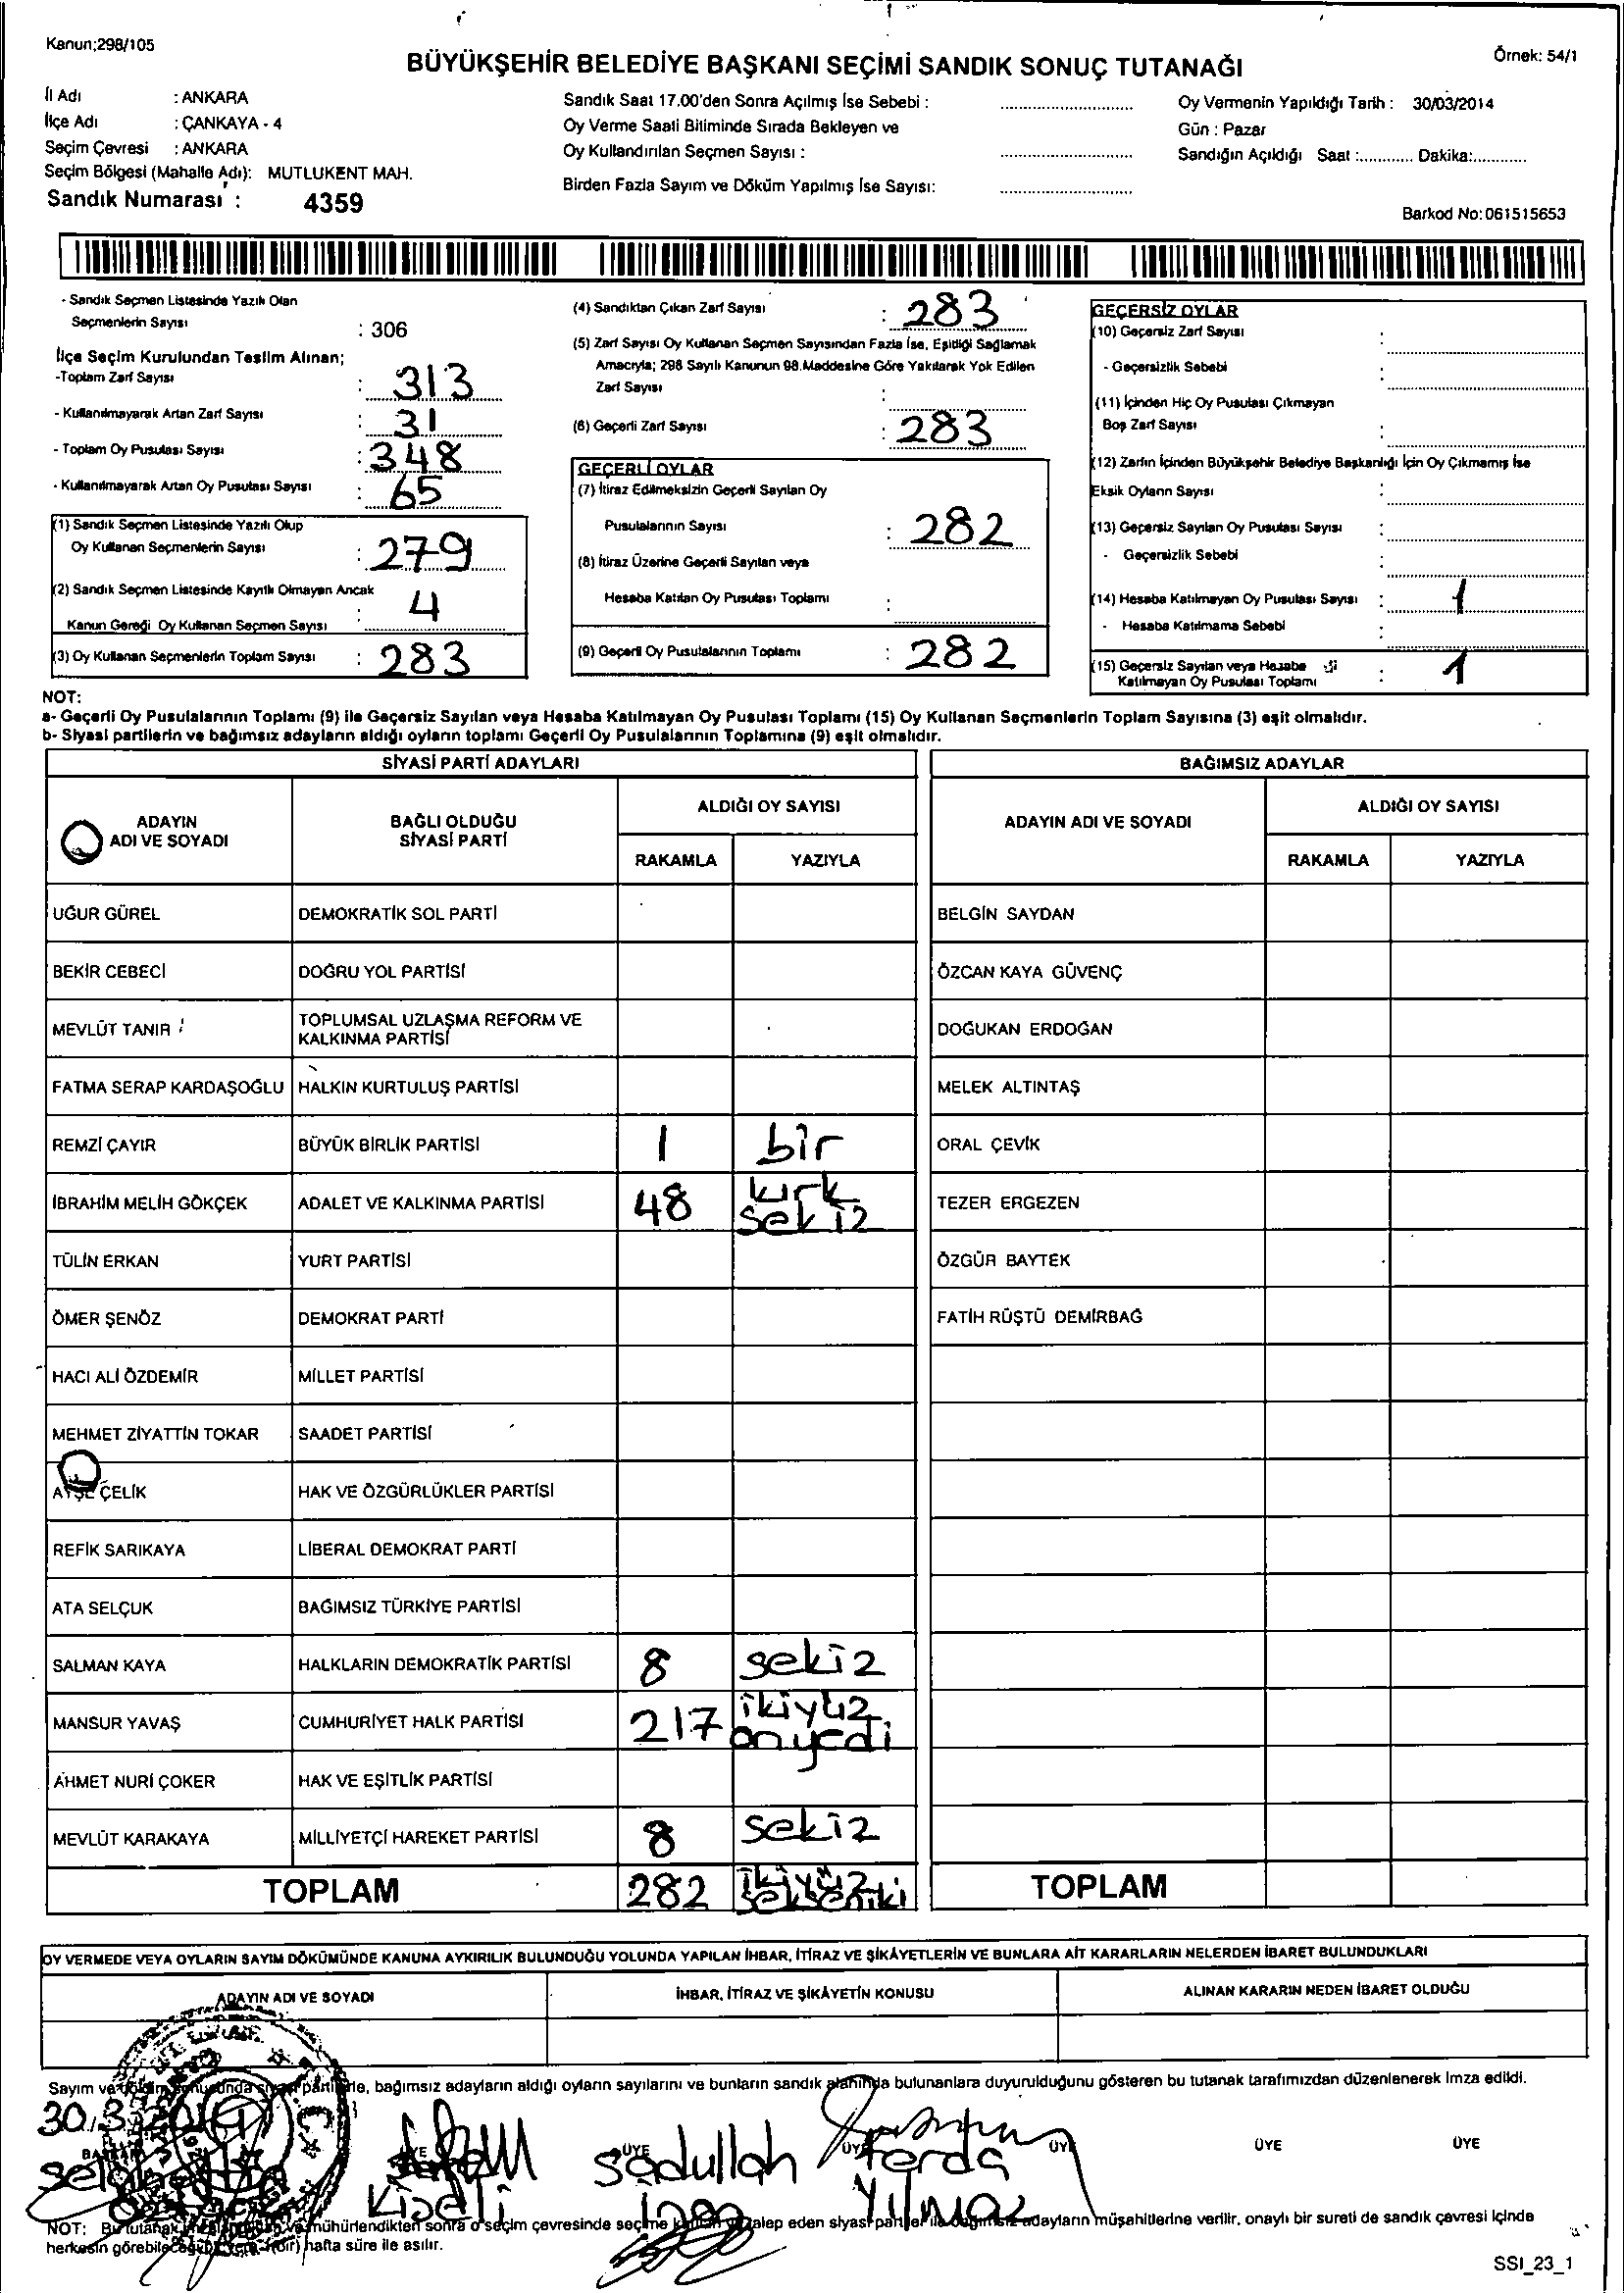 Kanun;298/105
Örnek: 54/1
BÜYÜKŞEHİR BELEDİYE BAŞKANI SEÇİMİ SANDIK SONUÇ TUTANAĞI
İl Adı : ANKARA
İlçe Adı : ÇANKAYA - 4
Seçim Çevresi : ANKARA
Seçim Bölgesi (Mahalle Adı): MUTLUKENT MAH.
Sandık Numarası : 4359
Sandık Saat 17.00'den Sonra Açılmış İse Sebebi :
Oy Verme Saati Bitiminde Sırada Bekleyen ve
Oy Kullandırılan Seçmen Sayısı :
Birden Fazla Sayım ve Döküm Yapılmış İse Sayısı:
Oy Vermenin Yapıldığı Tarih : 30/03/2014
Gün : Pazar
Sandığın Açıldığı Saat :............ Dakika:............
Barkod No:061515653
- Sandık Seçmen Listesinde Yazılı Olan
Seçmenlerin Sayısı : 306
İlçe Seçim Kurulundan Teslim Alınan;
-Toplam Zarf Sayısı : 313
- Kullanılmayarak Artan Zarf Sayısı : 31
- Toplam Oy Pusulası Sayısı : 348
- Kullanılmayarak Artan Oy Pusulası Sayısı : 65
(1) Sandık Seçmen Listesinde Yazılı Olup
Oy Kullanan Seçmenlerin Sayısı : 279
(2) Sandık Seçmen Listesinde Kayıtlı Olmayan Ancak
Kanun Gereği Oy Kullanan Seçmen Sayısı : 4
(3) Oy Kullanan Seçmenlerin Toplam Sayısı : 283
(4) Sandıktan Çıkan Zarf Sayısı : 283
(5) Zarf Sayısı Oy Kullanan Seçmen Sayısından Fazla İse, Eşitliği Sağlamak
Amacıyla; 298 Sayılı Kanunun 98.Maddesine Göre Yakılarak Yok Edilen
Zarf Sayısı :
(6) Geçerli Zarf Sayısı : 283
GEÇERLİ OYLAR
(7) İtiraz Edilmeksizin Geçerli Sayılan Oy
Pusulalarının Sayısı : 282
(8) İtiraz Üzerine Geçerli Sayılan veya
Hesaba Katılan Oy Pusulası Toplamı :
(9) Geçerli Oy Pusulalarının Toplamı : 282
GEÇERSİZ OYLAR
(10) Geçersiz Zarf Sayısı :
- Geçersizlik Sebebi :
(11) İçinden Hiç Oy Pusulası Çıkmayan
Boş Zarf Sayısı :
(12) Zarfın İçinden Büyükşehir Belediye Başkanlığı İçin Oy Çıkmamış İse
Eksik Oyların Sayısı :
(13) Geçersiz Sayılan Oy Pusulası Sayısı :
- Geçersizlik Sebebi :
(14) Hesaba Katılmayan Oy Pusulası Sayısı : 1
- Hesaba Katılmama Sebebi :
(15) Geçersiz Sayılan veya Hesaba
Katılmayan Oy Pusulası Toplamı : 1
NOT:
a- Geçerli Oy Pusulalarının Toplamı (9) ile Geçersiz Sayılan veya Hesaba Katılmayan Oy Pusulası Toplamı (15) Oy Kullanan Seçmenlerin Toplam Sayısına (3) eşit olmalıdır.
b- Siyasi partilerin ve bağımsız adayların aldığı oyların toplamı Geçerli Oy Pusulalarının Toplamına (9) eşit olmalıdır.
SİYASİ PARTİ ADAYLARI
ADAYIN
ADI VE SOYADI
BAĞLI OLDUĞU
SİYASİ PARTİ
ALDIĞI OY SAYISI
RAKAMLA YAZIYLA
UĞUR GÜREL DEMOKRATİK SOL PARTİ
BEKİR CEBECİ DOĞRU YOL PARTİSİ
MEVLÜT TANIR TOPLUMSAL UZLAŞMA REFORM VE
KALKINMA PARTİSİ
FATMA SERAP KARDAŞOĞLU HALKIN KURTULUŞ PARTİSİ
REMZİ ÇAYIR BÜYÜK BİRLİK PARTİSİ 1 bir
İBRAHİM MELİH GÖKÇEK ADALET VE KALKINMA PARTİSİ 48 kırk
sekiz
TÜLİN ERKAN YURT PARTİSİ
ÖMER ŞENÖZ DEMOKRAT PARTİ
HACI ALİ ÖZDEMİR MİLLET PARTİSİ
MEHMET ZİYATTİN TOKAR SAADET PARTİSİ
AYŞE ÇELİK HAK VE ÖZGÜRLÜKLER PARTİSİ
REFİK SARIKAYA LİBERAL DEMOKRAT PARTİ
ATA SELÇUK BAĞIMSIZ TÜRKİYE PARTİSİ
SALMAN KAYA HALKLARIN DEMOKRATİK PARTİSİ 8 sekiz
MANSUR YAVAŞ CUMHURİYET HALK PARTİSİ 217 ikiyüz
onyedi
AHMET NURİ ÇOKER HAK VE EŞİTLİK PARTİSİ
MEVLÜT KARAKAYA MİLLİYETÇİ HAREKET PARTİSİ 8 sekiz
TOPLAM 282 ikiyüz
sekseniki
BAĞIMSIZ ADAYLAR
ADAYIN ADI VE SOYADI
ALDIĞI OY SAYISI
RAKAMLA YAZIYLA
BELGİN SAYDAN
ÖZCAN KAYA GÜVENÇ
DOĞUKAN ERDOĞAN
MELEK ALTINTAŞ
ORAL ÇEVİK
TEZER ERGEZEN
ÖZGÜR BAYTEK
FATİH RÜŞTÜ DEMİRBAĞ
TOPLAM
OY VERMEDE VEYA OYLARIN SAYIM DÖKÜMÜNDE KANUNA AYKIRILIK BULUNDUĞU YOLUNDA YAPILAN İHBAR, İTİRAZ VE ŞİKÂYETLERİN VE BUNLARA AİT KARARLARIN NELERDEN İBARET BULUNDUKLARI
ADAYIN ADI VE SOYADI
İHBAR, İTİRAZ VE ŞİKÂYETİN KONUSU
ALINAN KARARIN NEDEN İBARET OLDUĞU
Sayım ve bağımsız adayların aldığı oyların sayılarını ve bunların sandık alanında bulunanlara duyurulduğunu gösteren bu tutanak tarafımızdan düzenlenerek imza edildi.
30.3.2014
BAŞKAN ÜYE ÜYE ÜYE ÜYE ÜYE ÜYE
Sadullah
Ferda
Yılmaz
NOT: Bu tutanak mühürlendikten sonra o seçim çevresinde seçime talep eden siyasi partiler ile bağımsız adayların müşahitlerine verilir, onaylı bir sureti de sandık çevresi içinde
herkesin görebileceği hafta süre ile asılır.
SSI_23_1